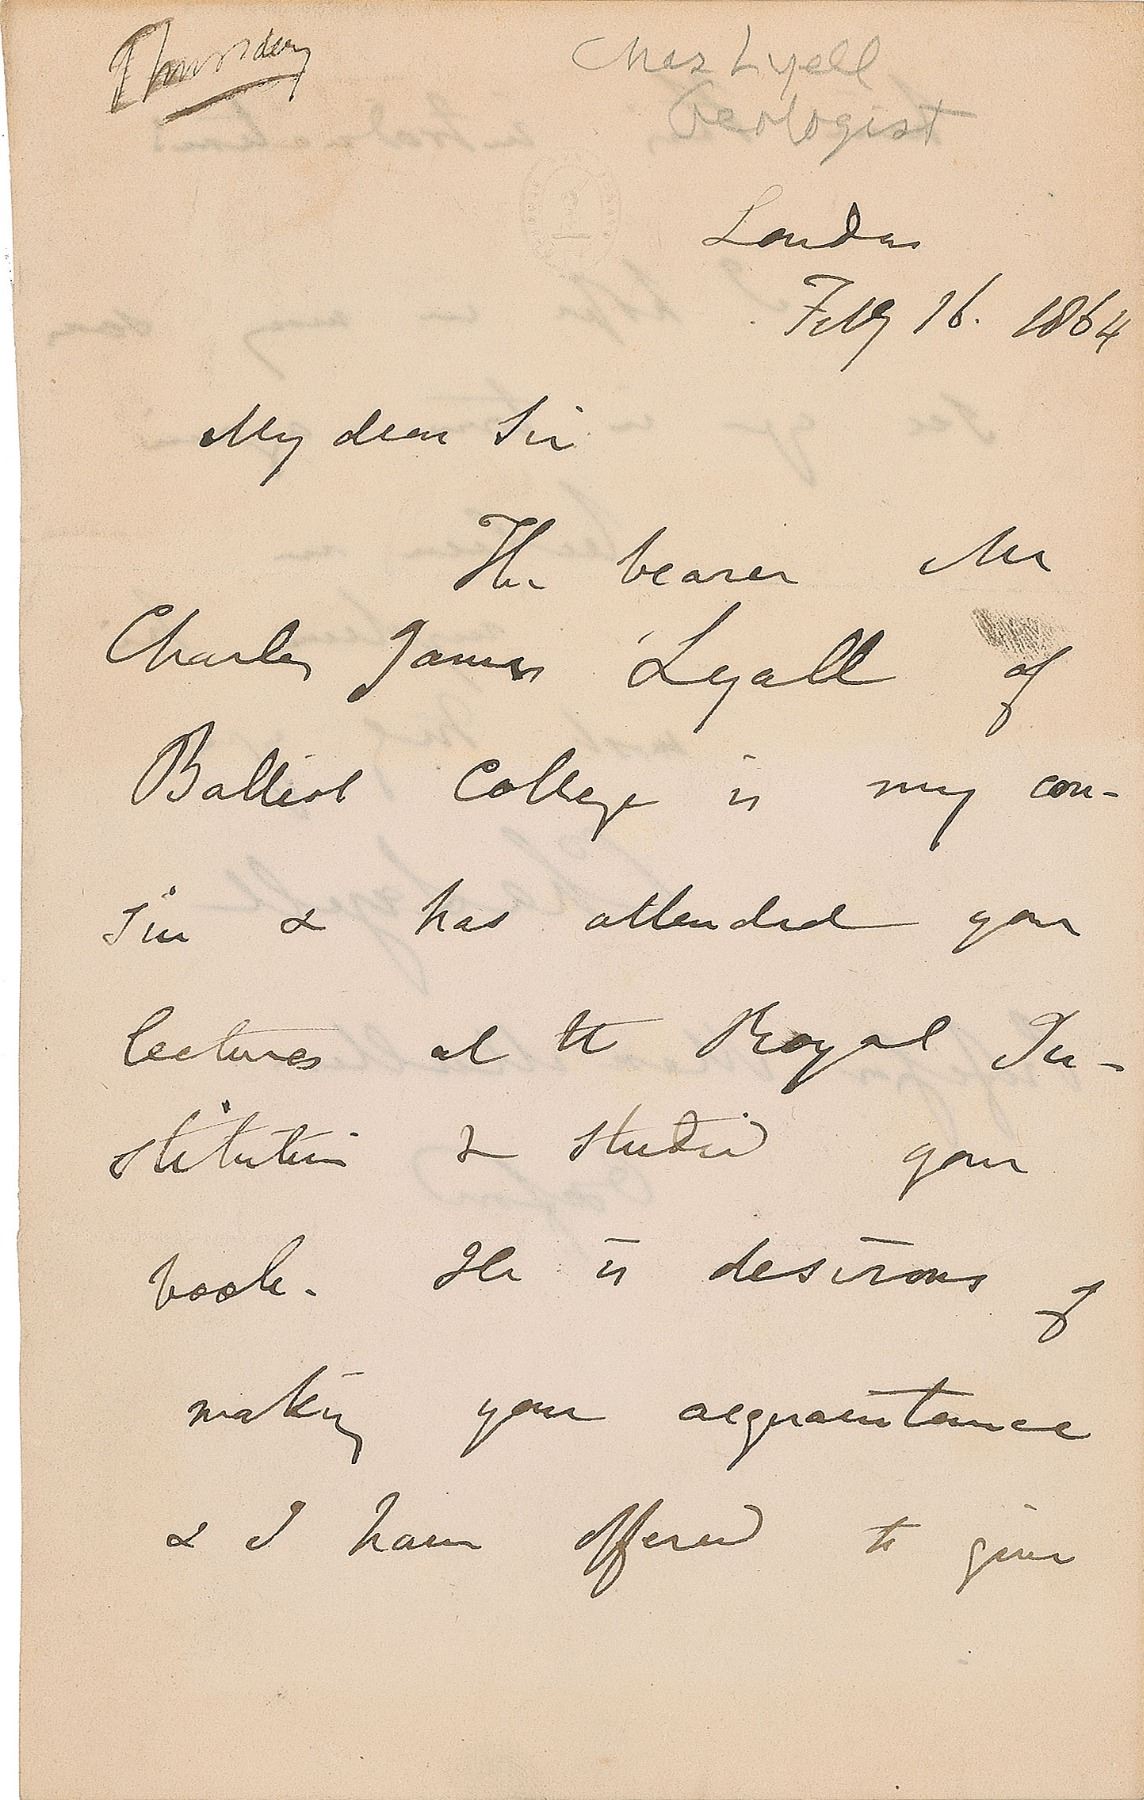 Thursday
Chas Lyell
Geologist
London
Feby 16. 1864
My dear Sir
The bearer Mr
Charles James Lyall of
Balliol College is my cou-
sin & has attended your
lectures at the Royal In-
stitution & studied your
book. He is desirous of
making your acquaintance
& I have offered to give